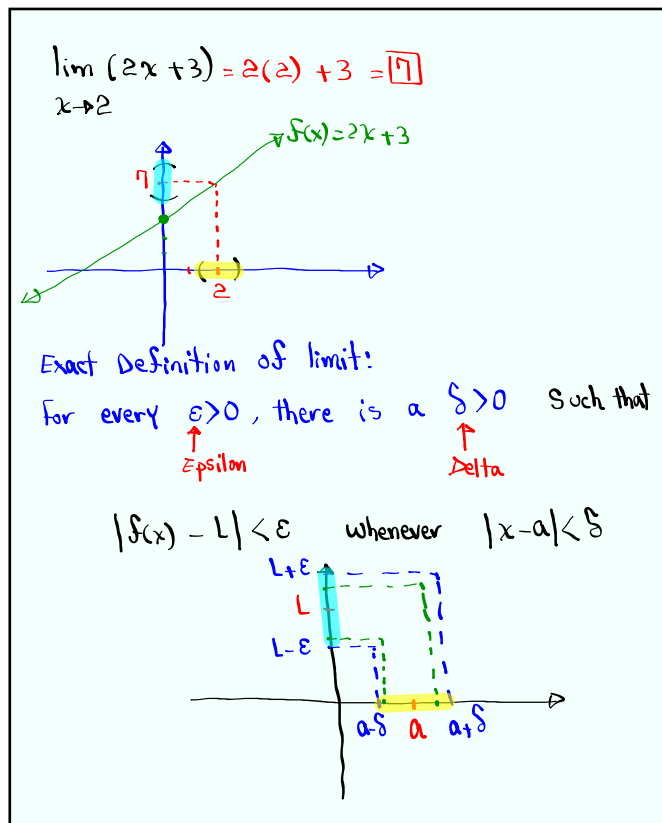 lim (2x+3) = 2(2) + 3 = 7
x→2
f(x)=2x+3
7
2
Exact Definition of limit:
For every ε>0, there is a δ>0 such that
Epsilon
Delta
|f(x) - L| < ε whenever |x-a| < δ
L+ε
L
L-ε
a-δ a a+δ